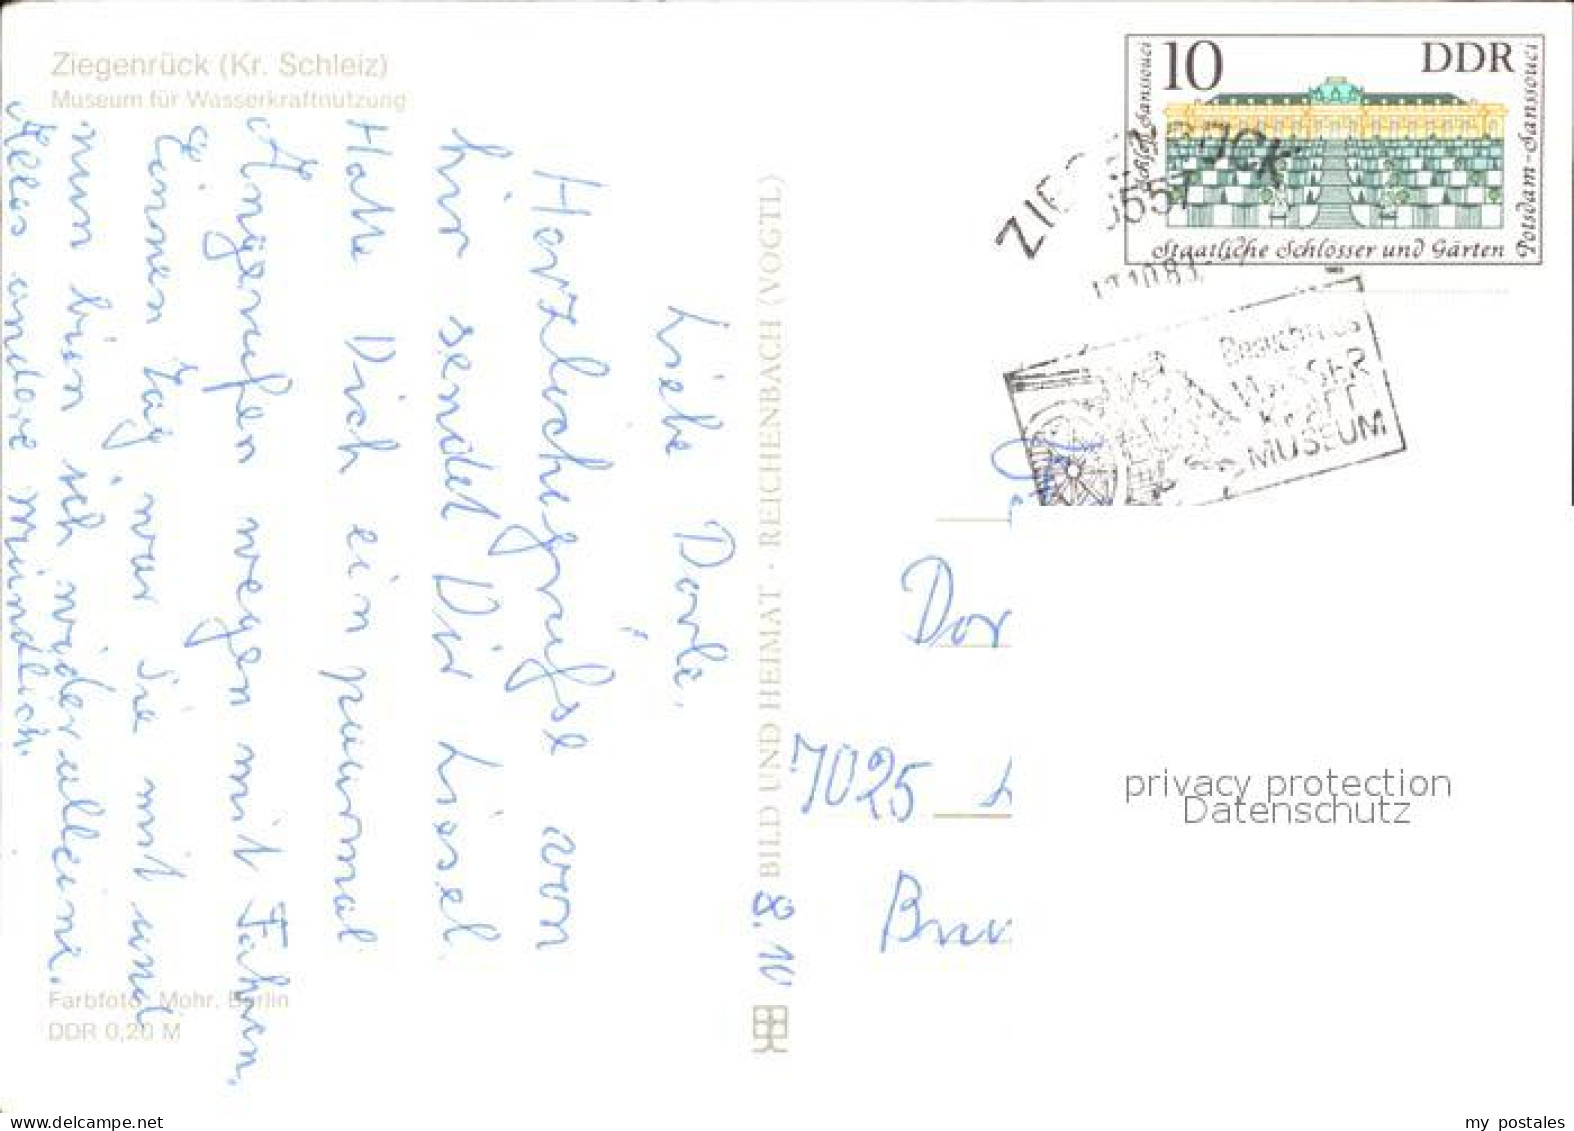 Ziegenrück (Kr. Schleiz)
Museum für Wasserkraftnutzung
Liebe Dorle,
Herzlichegrüfse von
hir sendet Dir Liesel
Hatte Dich ein paarmal
Angerufen wegen mit Fahren.
Einen Tag war Sie mit und
nun bin ich wider alleine.
Alles andere Mündlich.
Farbfoto: Mohr, Berlin
DDR 0,20 M
BILD UND HEIMAT · REICHENBACH (VOGTL)
8.10
10 DDR
Schloß Sanssouci
Potsdam-Sanssouci
Staatliche Schlösser und Gärten
1983
ZIEGENRÜCK
6557
Besucht das
WASSER
KRAFT
MUSEUM
Dor
7025 L
privacy protection
Datenschutz
my postales